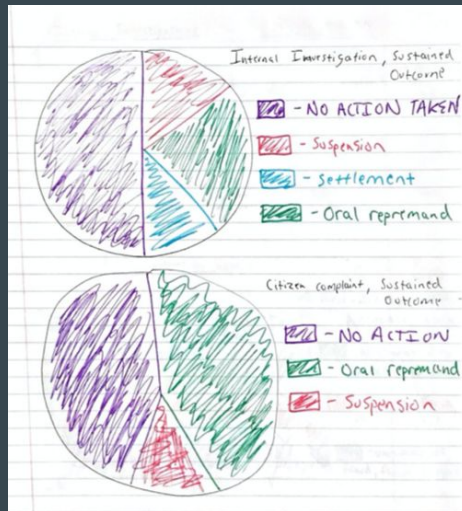 Internal Investigation, Sustained
Outcome
- NO ACTION TAKEN
- Suspension
- Settlement
- Oral repremand
Citizen complaint, Sustained
Outcome
- NO ACTION
- Oral repremand
- Suspension